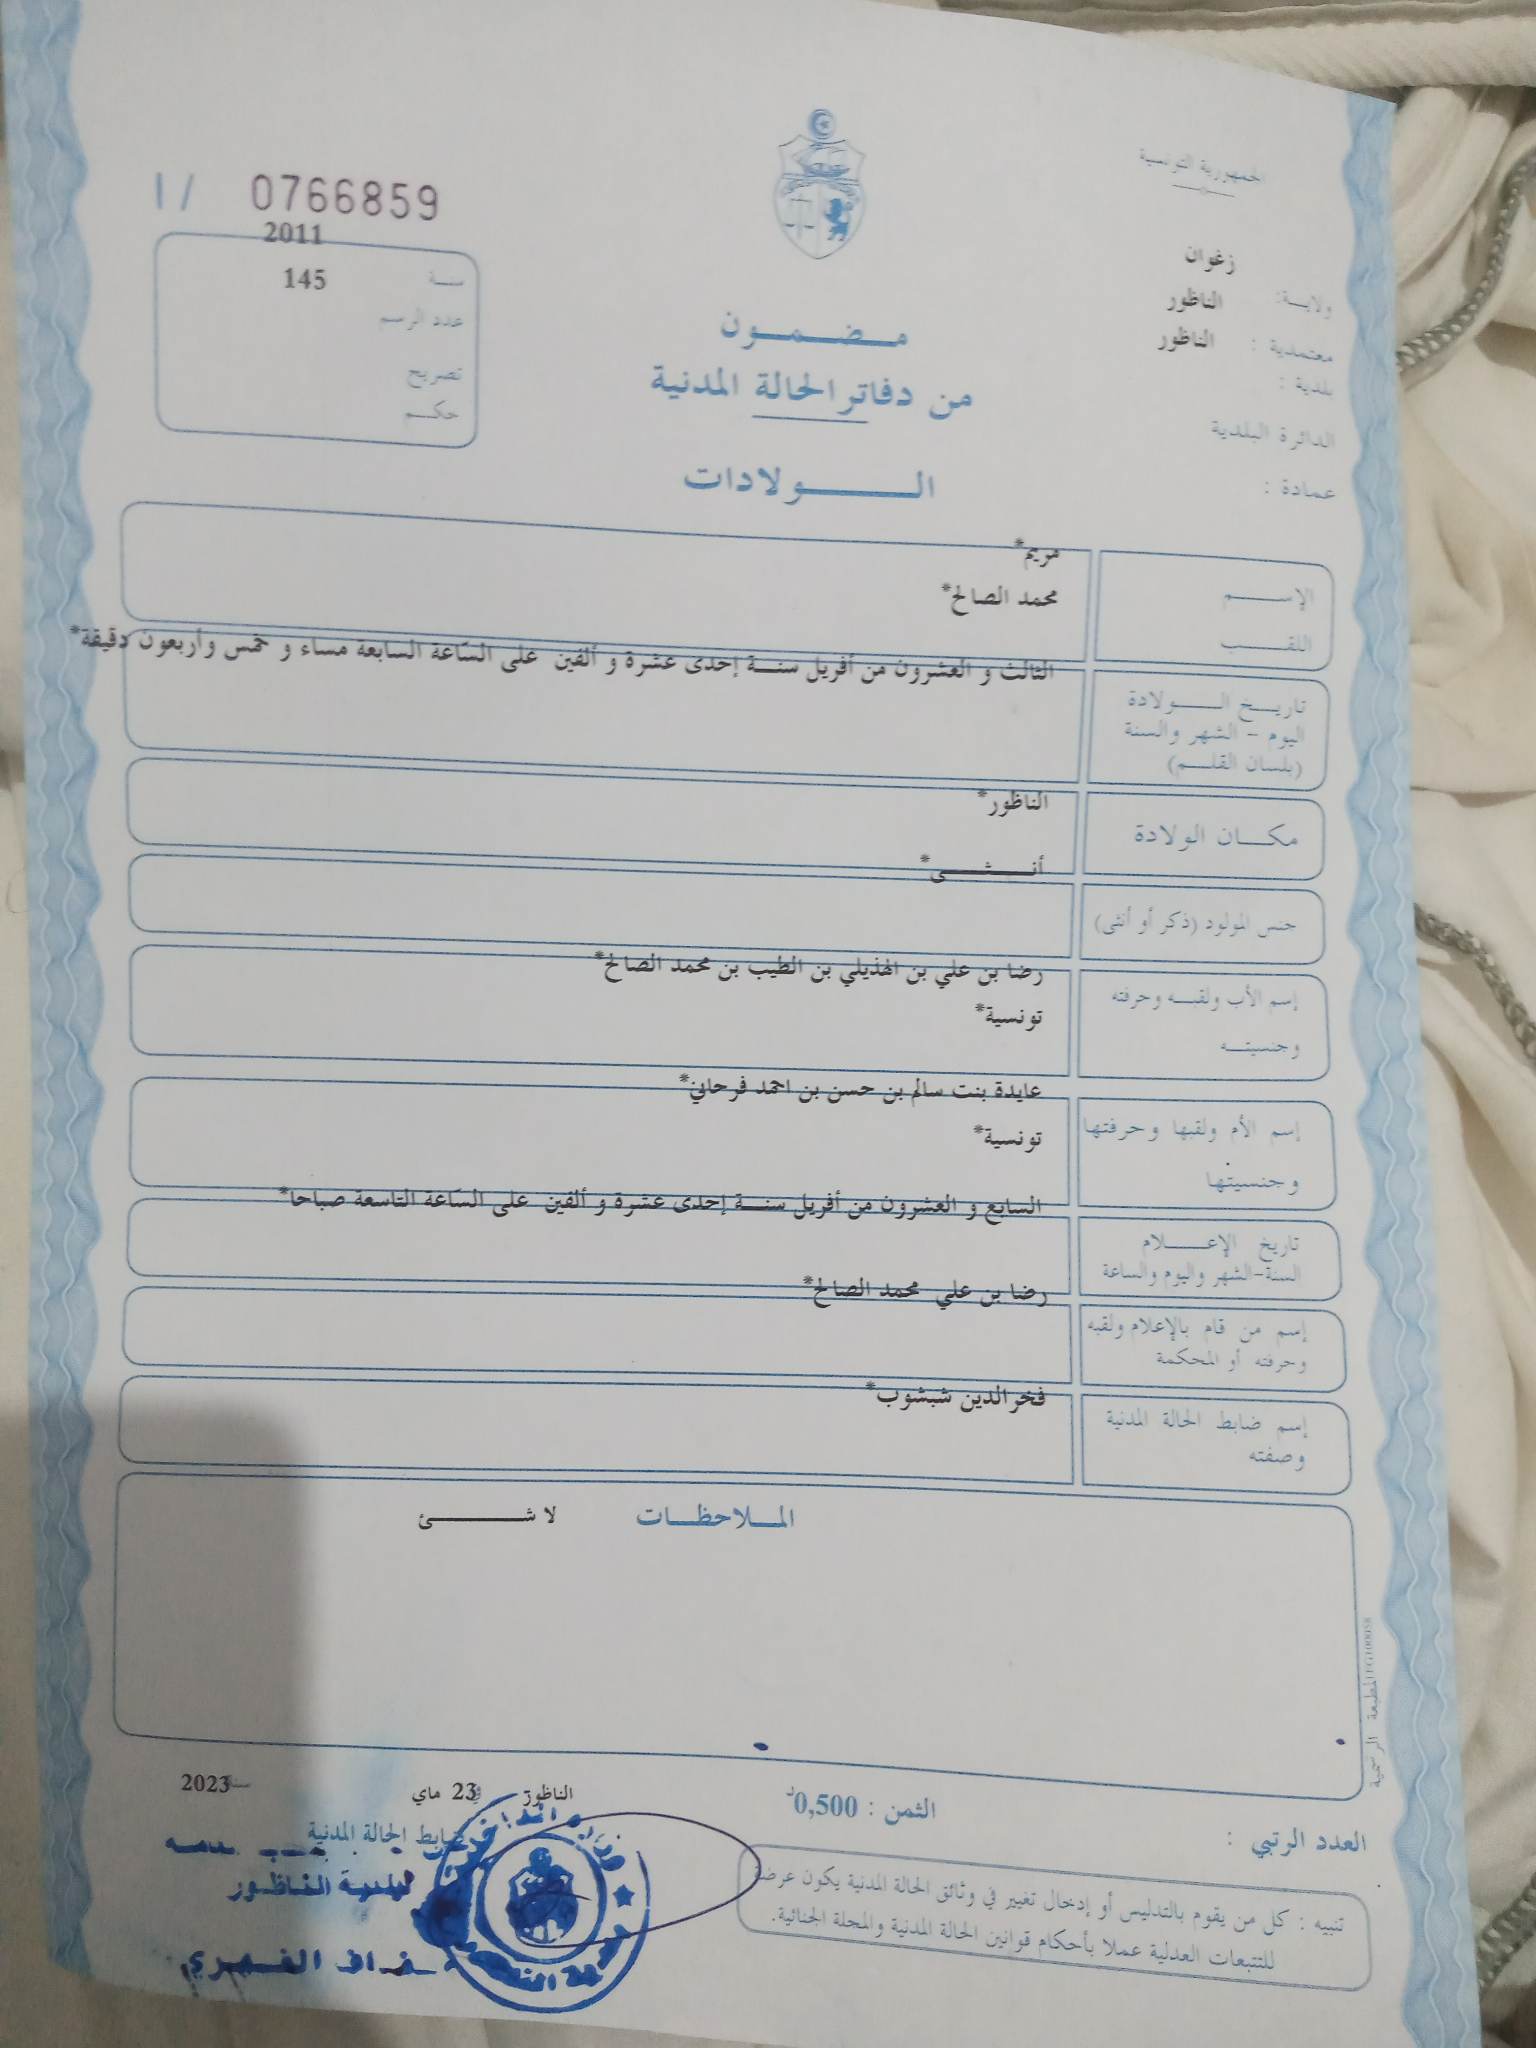 الجمهورية التونسية
I / 0766859
زغوان
ولايـــة:
الناظور
معتمدية :
الناظور
بلدية :
الدائرة البلدية
عمادة :
2011
سنــة
145
عدد الرسم
تصريح
حكـــم
مـــضـــمـــون
من دفاتر الحالة المدنية
الــــــولادات
الإســــــم
مريم*
اللقـــــب
محمد الصالح*
تاريـــخ الـــــولادة
اليوم - الشهر والسنة
(بلسان القلـــم)
الثالث و العشرون من أفريل سنـــة إحدى عشرة و ألفين على السّاعة السابعة مساء و خمس وأربعون دقيقة*
مكـــان الولادة
الناظور*
جنس المولود (ذكر أو أنثى)
أنـــــثـــــى*
إسم الأب ولقبـــه وحرفته
وجنسيتـــه
رضا بن علي بن الهذيلي بن الطيب بن محمد الصالح*
تونسية*
إسم الأم ولقبها وحرفتها
وجنسيتها
عايدة بنت سالم بن حسن بن احمد فرحاني*
تونسية*
تاريخ الإعـــــلام
السنة-الشهر واليوم والساعة
السابع و العشرون من أفريل سنـــة إحدى عشرة و ألفين على السّاعة التاسعة صباحا*
إسم من قام بالإعلام ولقبه
وحرفته أو المحكمة
رضا بن علي محمد الصالح*
إسم ضابط الحالة المدنية
وصفته
فخر الدين شبشوب*
المـــلاحظـــات لا شـــــــئ
المطبعة الرسمية
الناظور في 23 ماي سنة 2023
الثمن : 0,500د
العدد الرتبي :
ضابط الحالة المدنية
لبلدية الناظور
الفهري
تنبيه : كل من يقوم بالتدليس أو إدخال تغيير في وثائق الحالة المدنية يكون عرضة
للتتبعات العدلية عملا بأحكام قوانين الحالة المدنية والمجلة الجنائية.